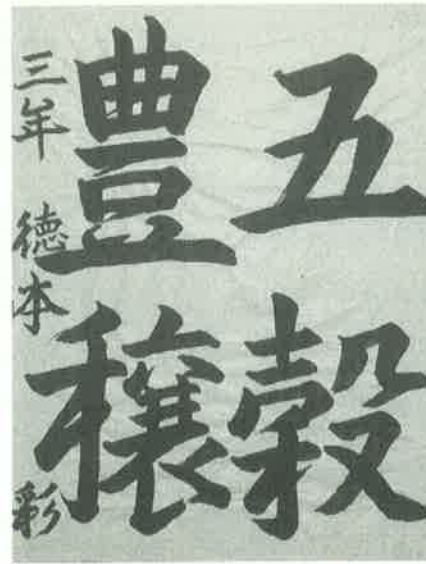 五穀
豊穣
三年 徳本 彩